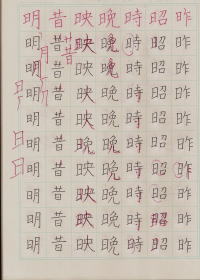 明昔映晩時昭昨
明昔映晩時昭昨
明昔映晩時昭昨
明昔映晩時昭昨
明昔映晩時昭昨
明昔映晩時昭昨
明昔映晩時昭昨
明昔映晩時昭昨
明昔映晩時昭昨
明昔映晩時昭昨